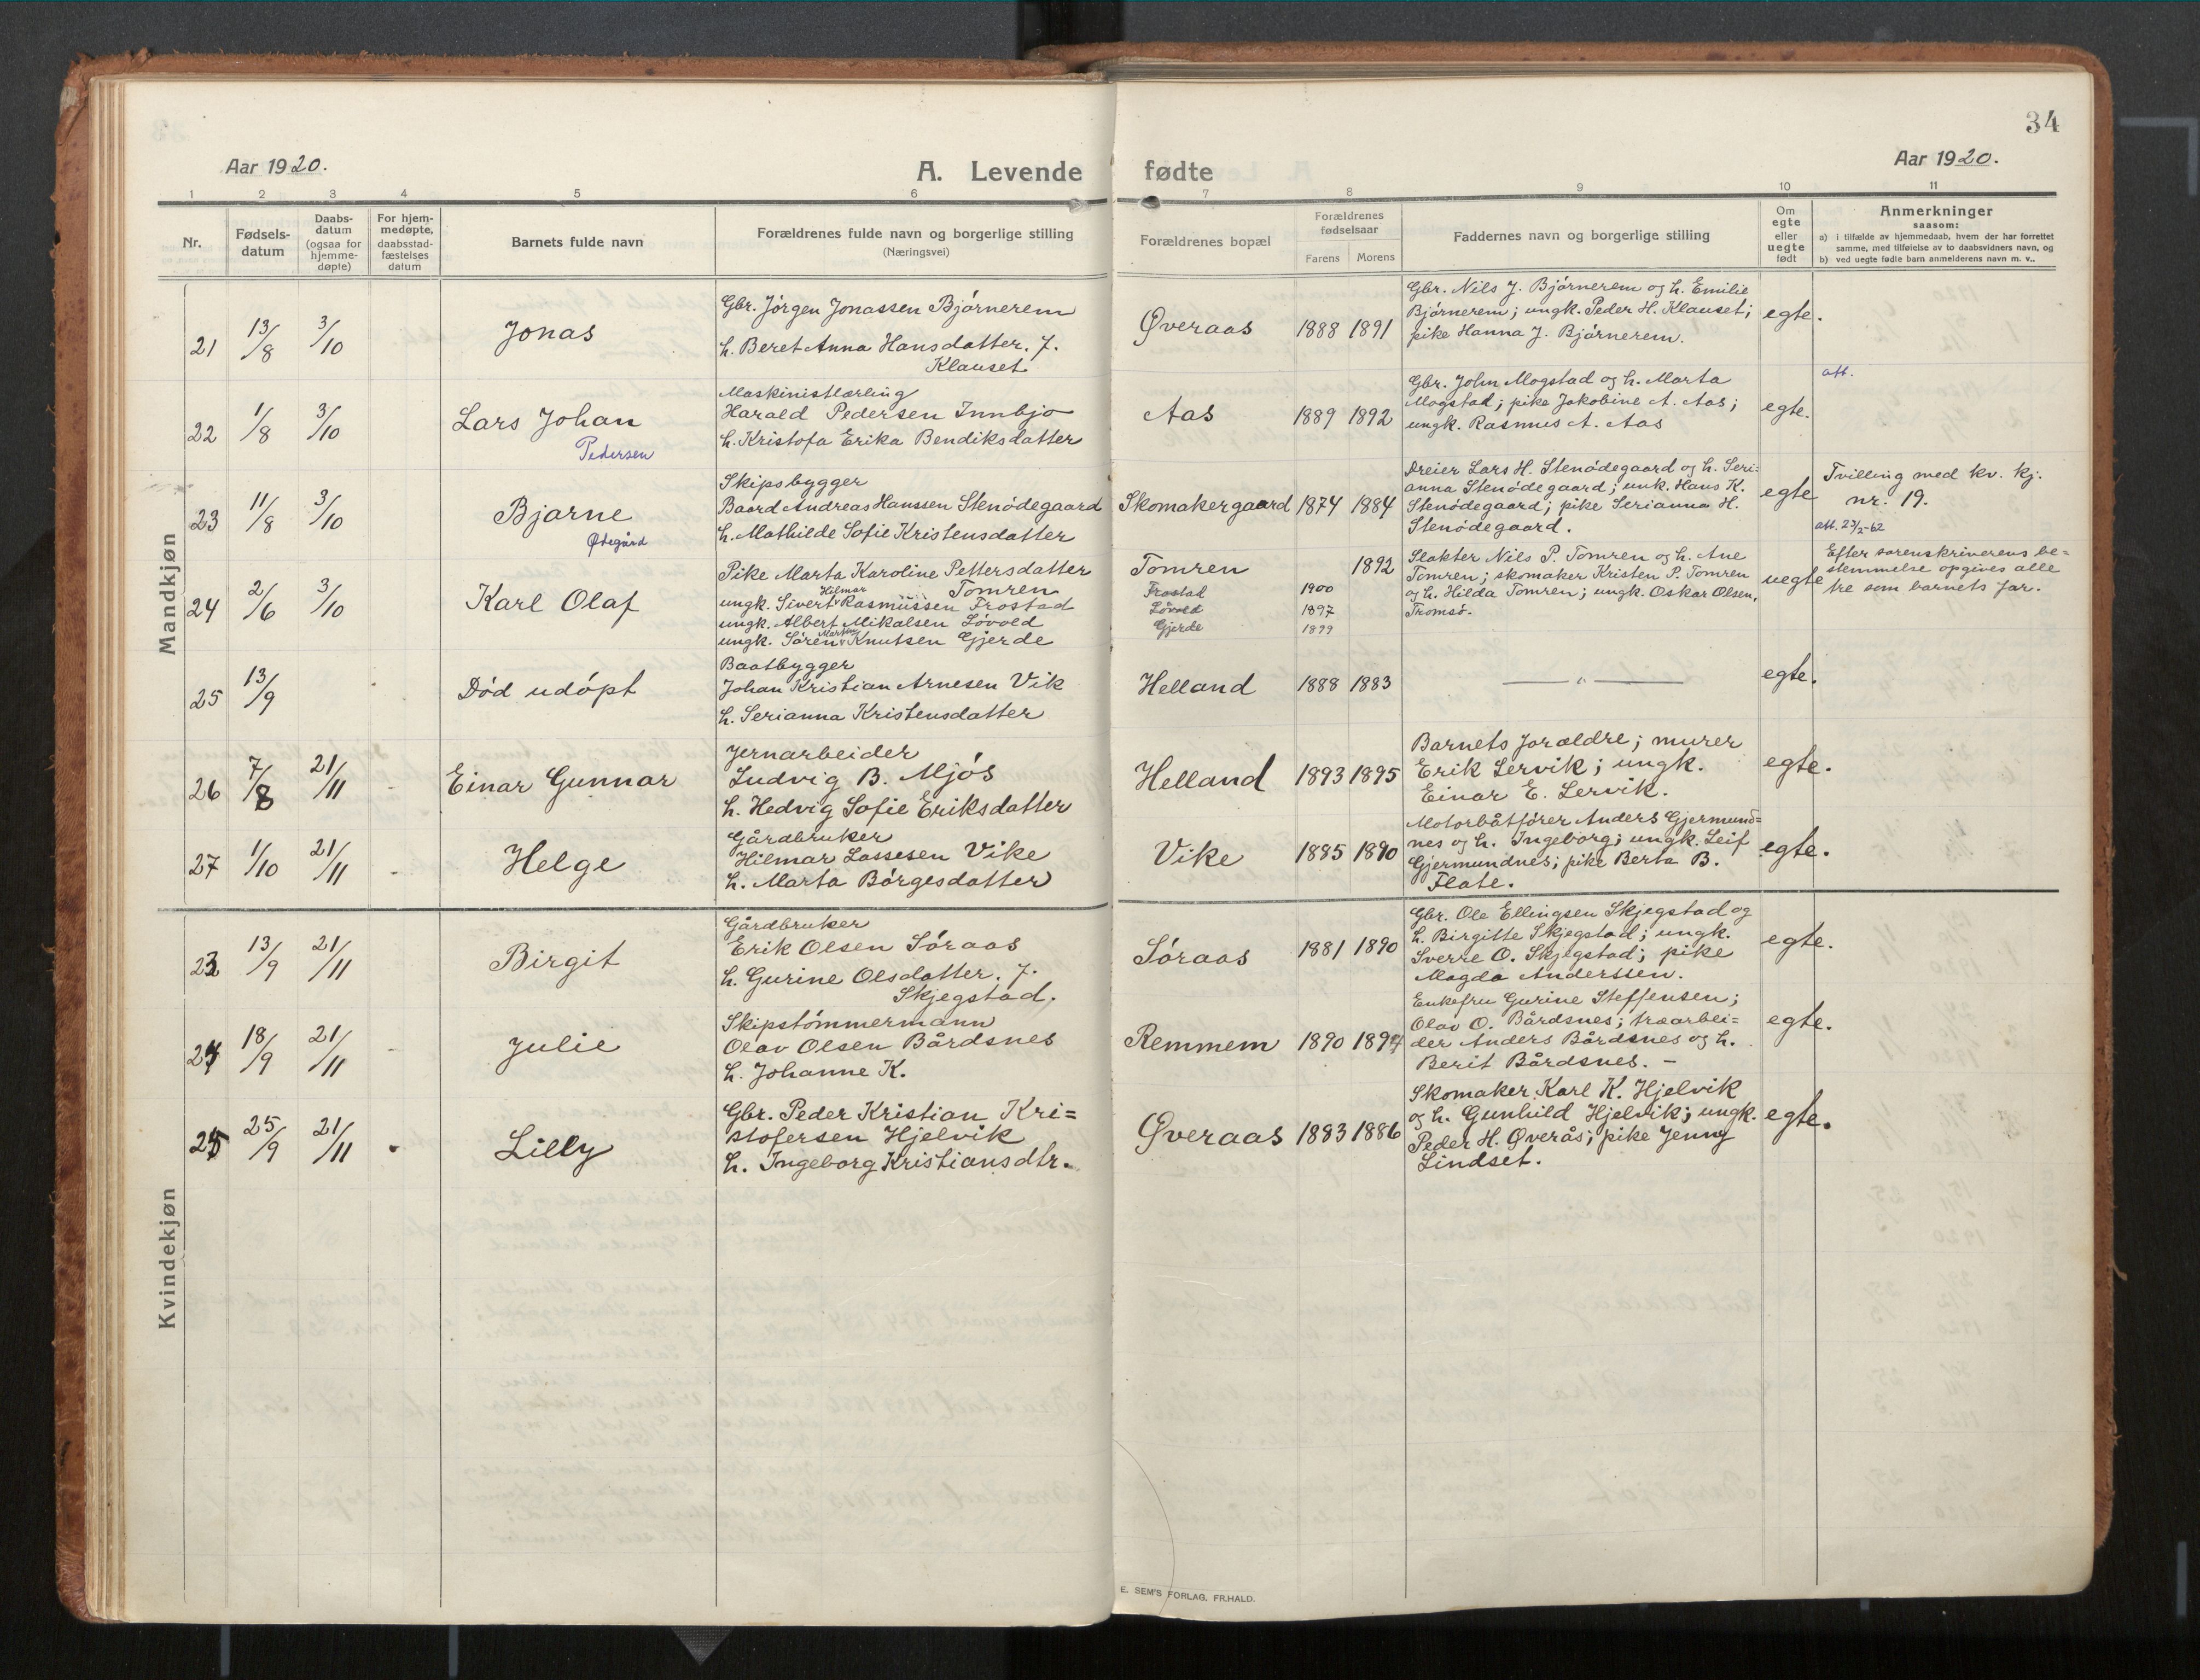 34
Aar 1920.
A. Levende fødte
Aar 1920.
1 2 3 4 5 6 7 8 9 10 11
Nr.
Fødsels-
datum
Daabs-
datum
(ogsaa for
hjemme-
døpte)
For hjem-
medøpte,
daabsstad-
fæstelses
datum
Barnets fulde navn
Forældrenes fulde navn og borgerlige stilling
(Næringsvei)
Forældrenes bopæl
Forældrenes
fødselsaar
Farens Morens
Faddernes navn og borgerlige stilling
Om
egte
eller
uegte
født
Anmerkninger
saasom:
a) i tilfælde av hjemmedaab, hvem der har forrettet
samme, med tilføielse av to daabsvidners navn, og
b) ved uegte fødte barn anmelderens navn m. v..
Mandkjøn
21 13/8 3/10 Jonas
Gbr. Jörgen Jonassen Björnerem
h. Beret Anna Hansdatter. f.
Klauset
Øveraas 1888 1891
Gbr. Nils J. Björnerem og h. Emilie
Björnerem; ungk. Peder H. Klauset;
pike Hanna J. Björnerem.
egte.
22 1/8 3/10 Lars Johan
Pedersen
Maskinistlærling
Harald Pedersen Innbjo
h. Kristofa Erika Bendiksdatter
Aas 1889 1892
Gbr. John Mogstad og h. Marta
Mogstad; pike Jakobine A. Aas;
ungk. Rasmus A. Aas
egte.
att.
23 11/8 3/10 Bjarne
Ødegård
Skipsbygger
Baard Andreas Hanssen Stenödegaard
h. Mathilde Sofie Kristensdatter
Skomakergaard 1874 1884
Dreier Lars H. Stenödegaard og h. Seri=
anna Stenödegaard; unk. Hans K.
Stenödegaard; pike Serianna H.
Stenödegaard.
egte
Tvilling med kv. kj.
nr. 19.
att. 23/2-62
24 2/6 3/10 Karl Olaf
Pike Marta Karoline Pettersdatter
Tomren
ungk. Sivert Hilmar Rasmüssen Frostad
ungk. Albert Mikalsen Lövold
ungk. Sören Martin Knutsen Gjerde
Tomren 1892
Frostad 1900
Lövold 1897
Gjerde 1899
Slakter Nils P. Tomren og h. Ane
Tomren; skomaker Kristen P. Tomren
og h. Hilda Tomren; ungk. Oskar Olsen,
Tromsö.
uegte
Efter sorenskriverens be=
stemmelse opgives alle
tre som barnets far.
25 13/9 Död udöpt
Baatbygger
Johan Kristian Arnesen Vik
h. Serianna Kristensdatter
Helland 1888 1883
— " —
egte.
26 7/8 21/11 - Einar Gunnar
Jernarbeider
Ludvig B. Mjös
h. Hedvig Sofie Eriksdatter
Helland 1893 1895
Barnets foræeldre; murer
Erik Lervik; ungk.
Einar E. Lervik.
egte.
27 1/10 21/11 - Helge
Gårdbruker
Hilmar Lassesen Vike
h. Marta Börgesdatter
Vike 1885 1890
Motorbåtförer Anders Gjermund=
nes og h. Ingeborg; ungk. Leif
Gjermundnes; pike Berta B.
Flate.
egte.
Kvindekjøn
23 13/9 21/11 Birgit
Gårdbruker
Erik Olsen Söraas
h. Gurine Olsdatter. f.
Skjegstad.
Söraas 1881 1890
Gbr. Ole Ellingsen Skjegstad og
h. Birgitte Skjegstad; ungk.
Sverre O. Skjegstad; pike
Magda Anderssen.
egte.
24 18/9 21/11 - Julie
Skipstömmermann
Olav Olsen Bårdsnes
h. Johanne K.
Remmem 1890 1894
Enkefru Gurine Steffensen;
Olav O. Bårdsnes; træarbei=
der Anders Bårdsnes og h.
Berit Bårdsnes. -
egte.
25 25/9 21/11 - Lilly
Gbr. Peder Kristian Kri=
stofersen Hjelvik
h. Ingeborg Kristiansdtr.
Øveraas 1883 1886
Skomaker Karl K. Hjelvik
og h. Gunhild Hjelvik; ungk.
Peder H. Øverås; pike Jenny
Lindset.
egte.
E. SEM'S FORLAG, FR.HALD.